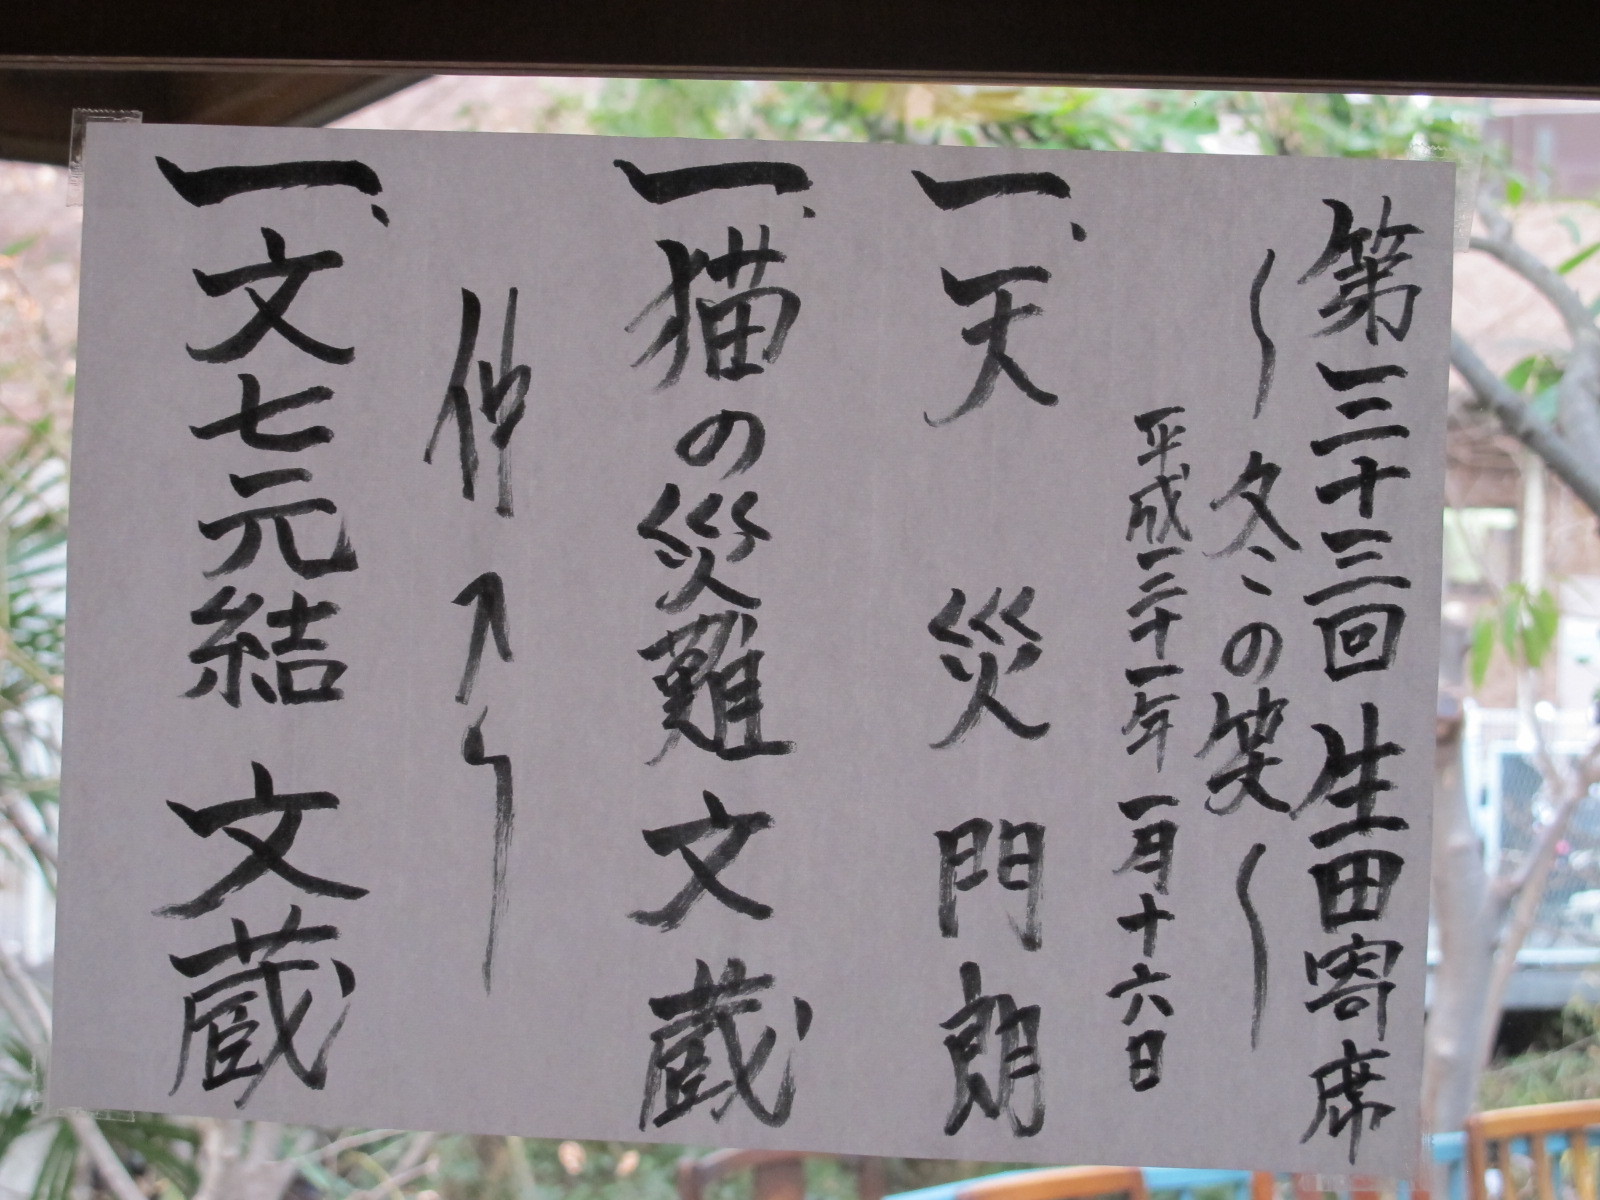 第三十三回 生田寄席
〜冬の笑〜
平成二十一年 一月十六日
一、天 災 門朗
一、猫の災難 文蔵
仲入り
一、文七元結 文蔵